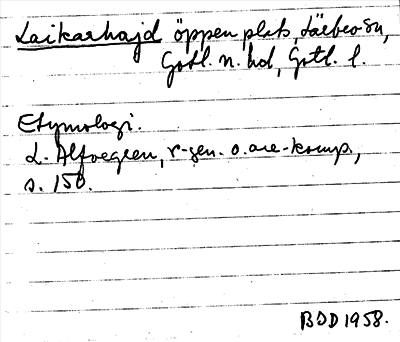 Laikarhajd öppen plats, Lärbro sn,
Gotl. n. hd, Gotl. l.
Etymologi.
L. Alfvegren, r-gen. o. are-komp.,
s. 150.
BDD 1958.